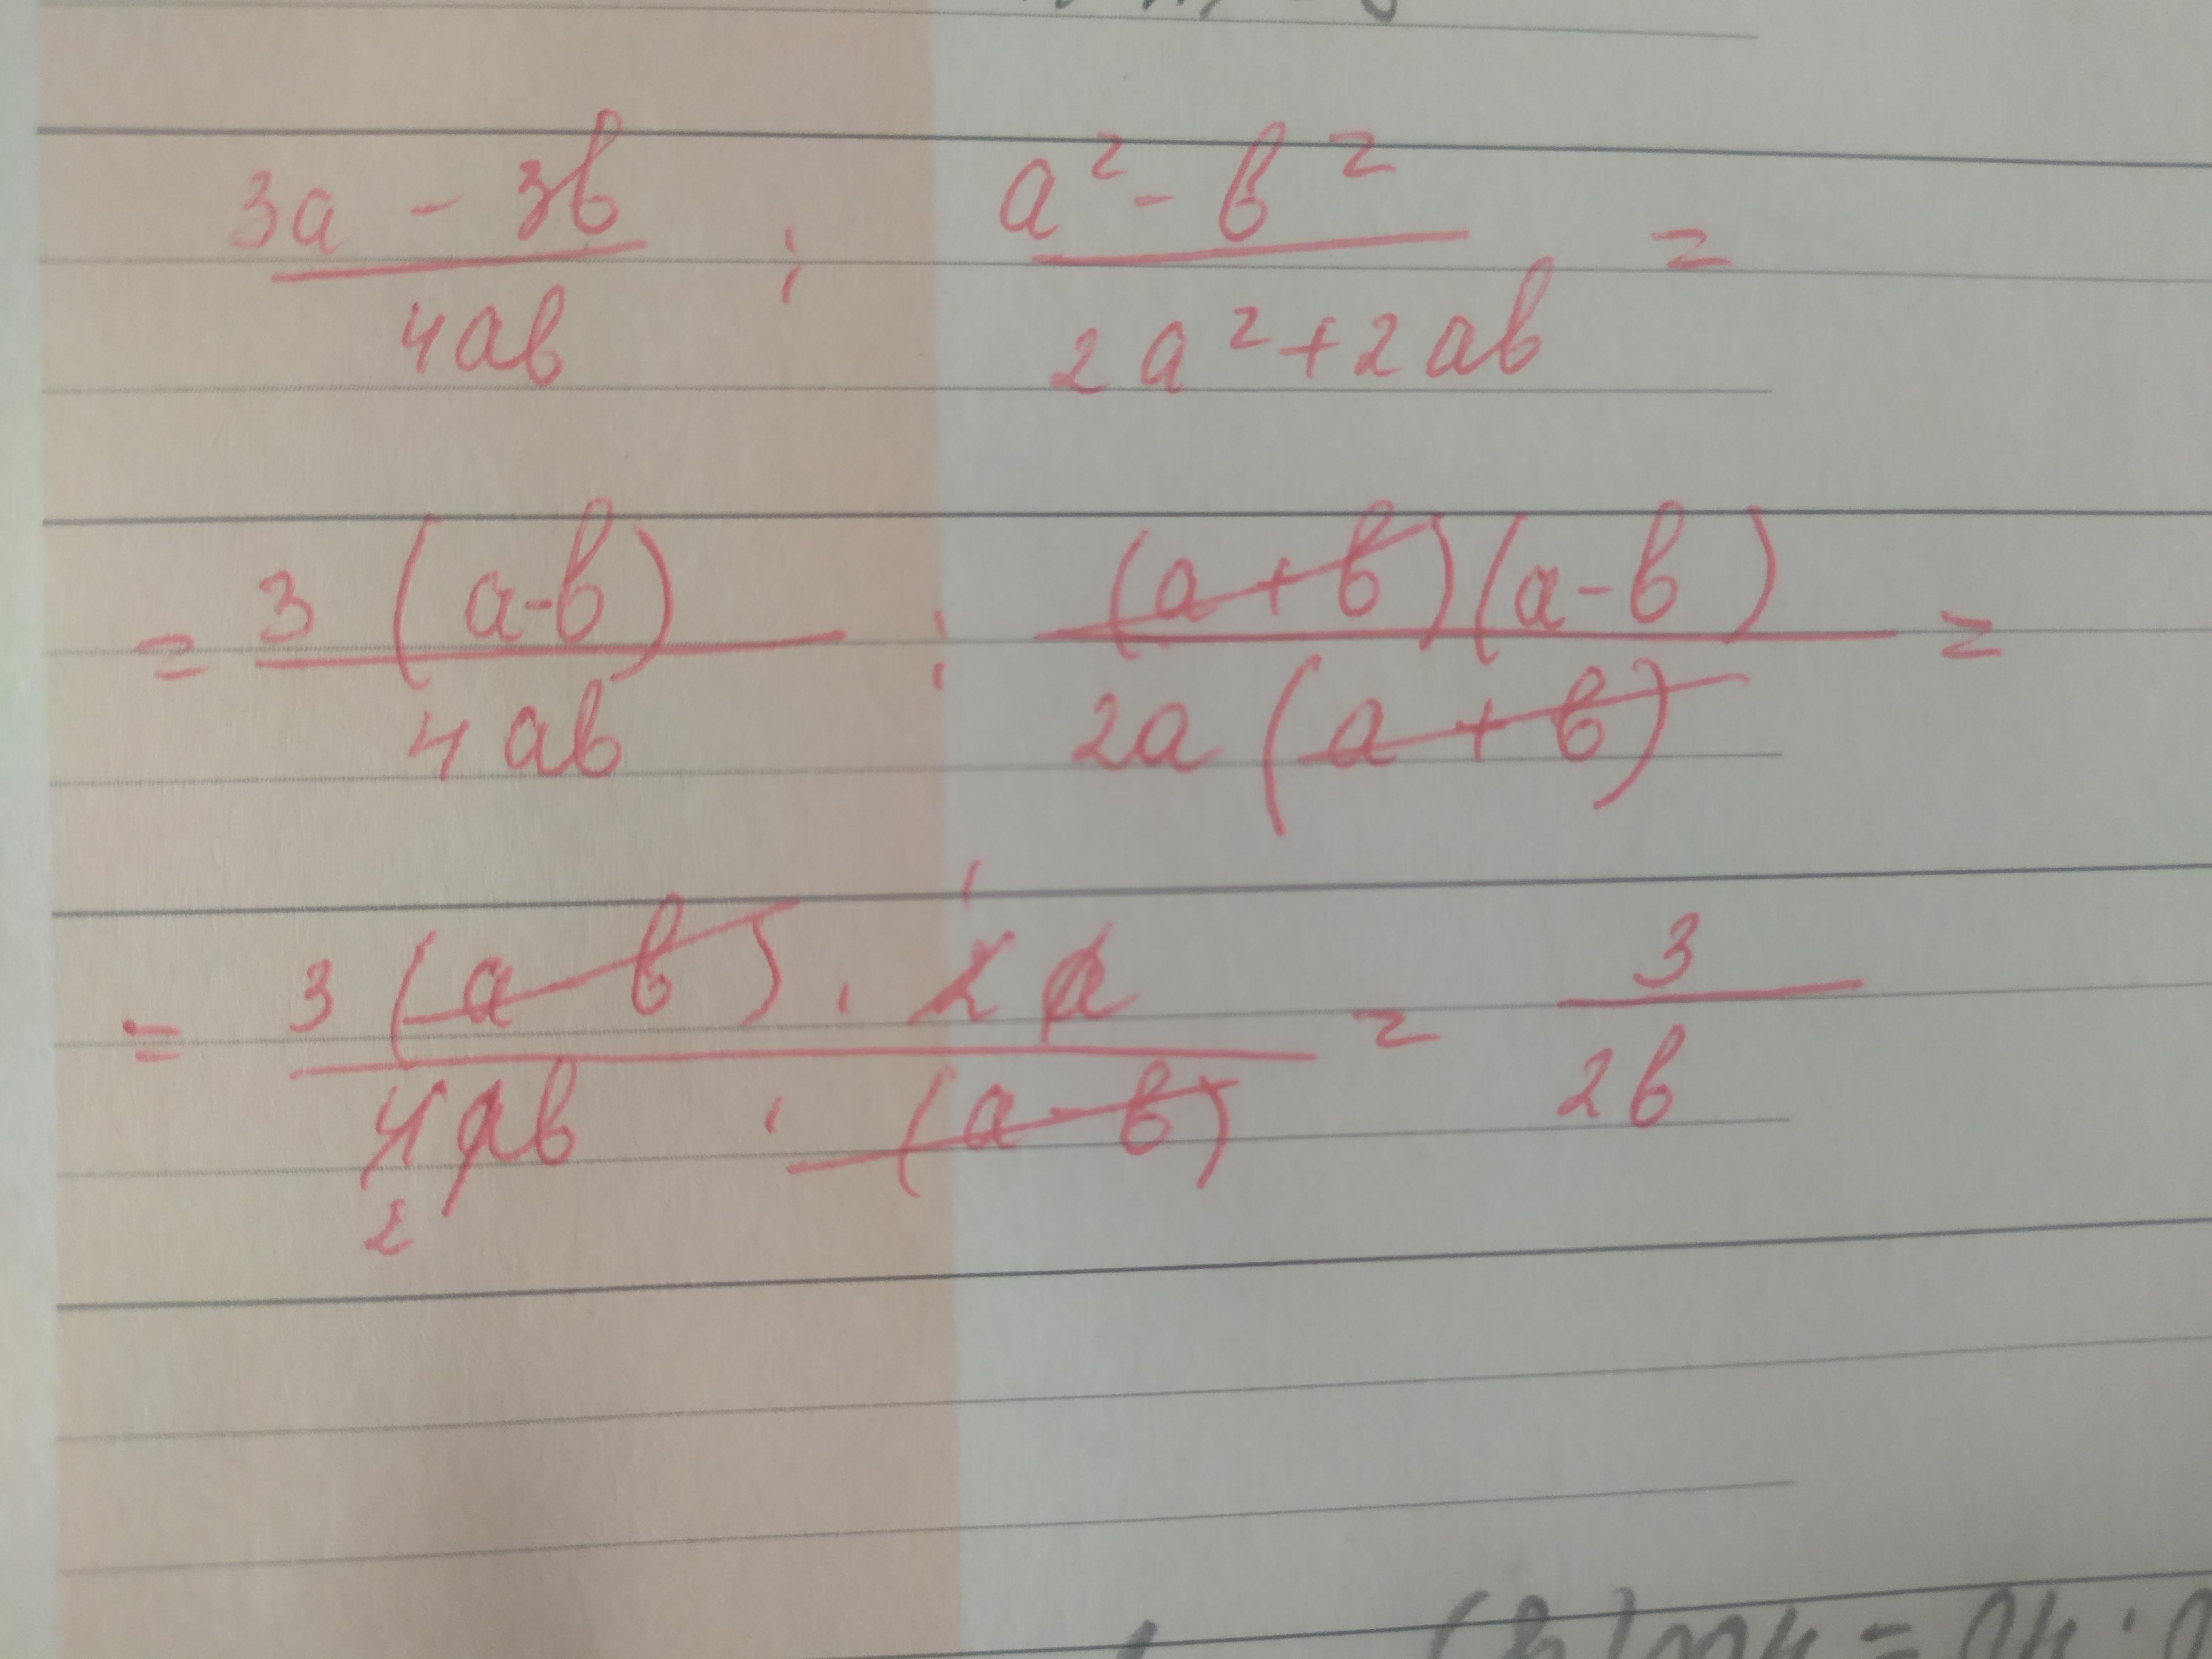 3a - 3b / 4ab : a² - b² / 2a² + 2ab =
= 3 (a-b) / 4ab : (a+b)(a-b) / 2a(a+b) =
= 3(a-b) · 2a / 4ab · (a-b) = 3 / 2b
1
2